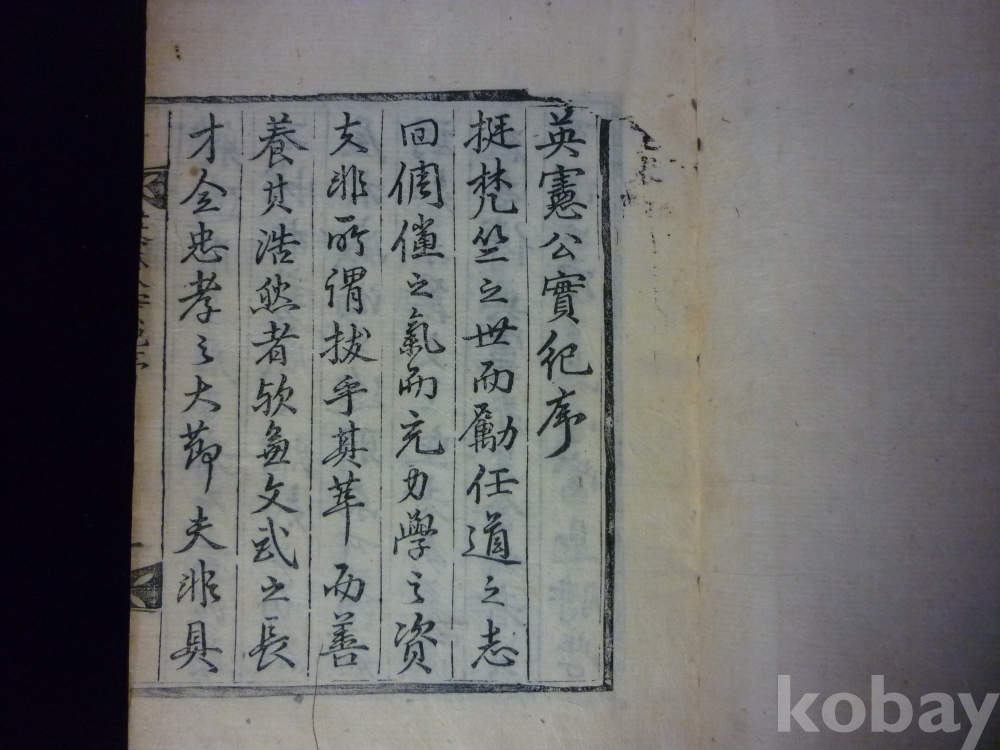 英憲公實紀序
挺梵竺之世而勵任道之志
回倜儻之氣而充力學之資
夫非所謂拔乎其萃而善
養其浩然者歟兼文武之長
才全忠孝之大節夫非具
kobay